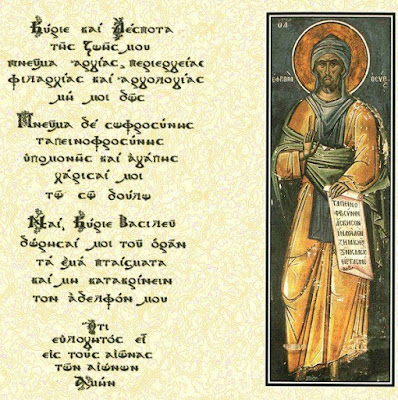 Κύριε καί Δέσποτα
τῆς ζωῆς μου
πνεῦμα ἀργίας, περιεργείας
φιλαρχίας καί ἀργολογίας
μή μοι δῶς
Πνεῦμα δέ σωφροσύνης
ταπεινοφροσύνης
ὑπομονῆς καί ἀγάπης
χάρισαί μοι
τῶ σῶ δούλω
Ναί, Κύριε Βασιλεῦ
δώρησαί μοι τοῦ ὁρᾶν
τά ἐμά πταίσματα
καί μή κατακρίνειν
τόν ἀδελφόν μου
Ὅτι
εὐλογητός εἶ
εἰς τούς αἰῶνας
τῶν αἰώνων
Ἀμήν